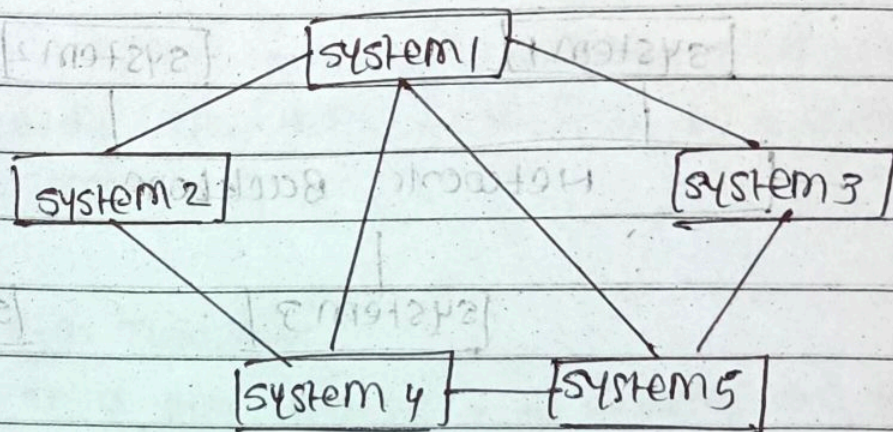 system 1
system 2
system 3
system 4
system 5